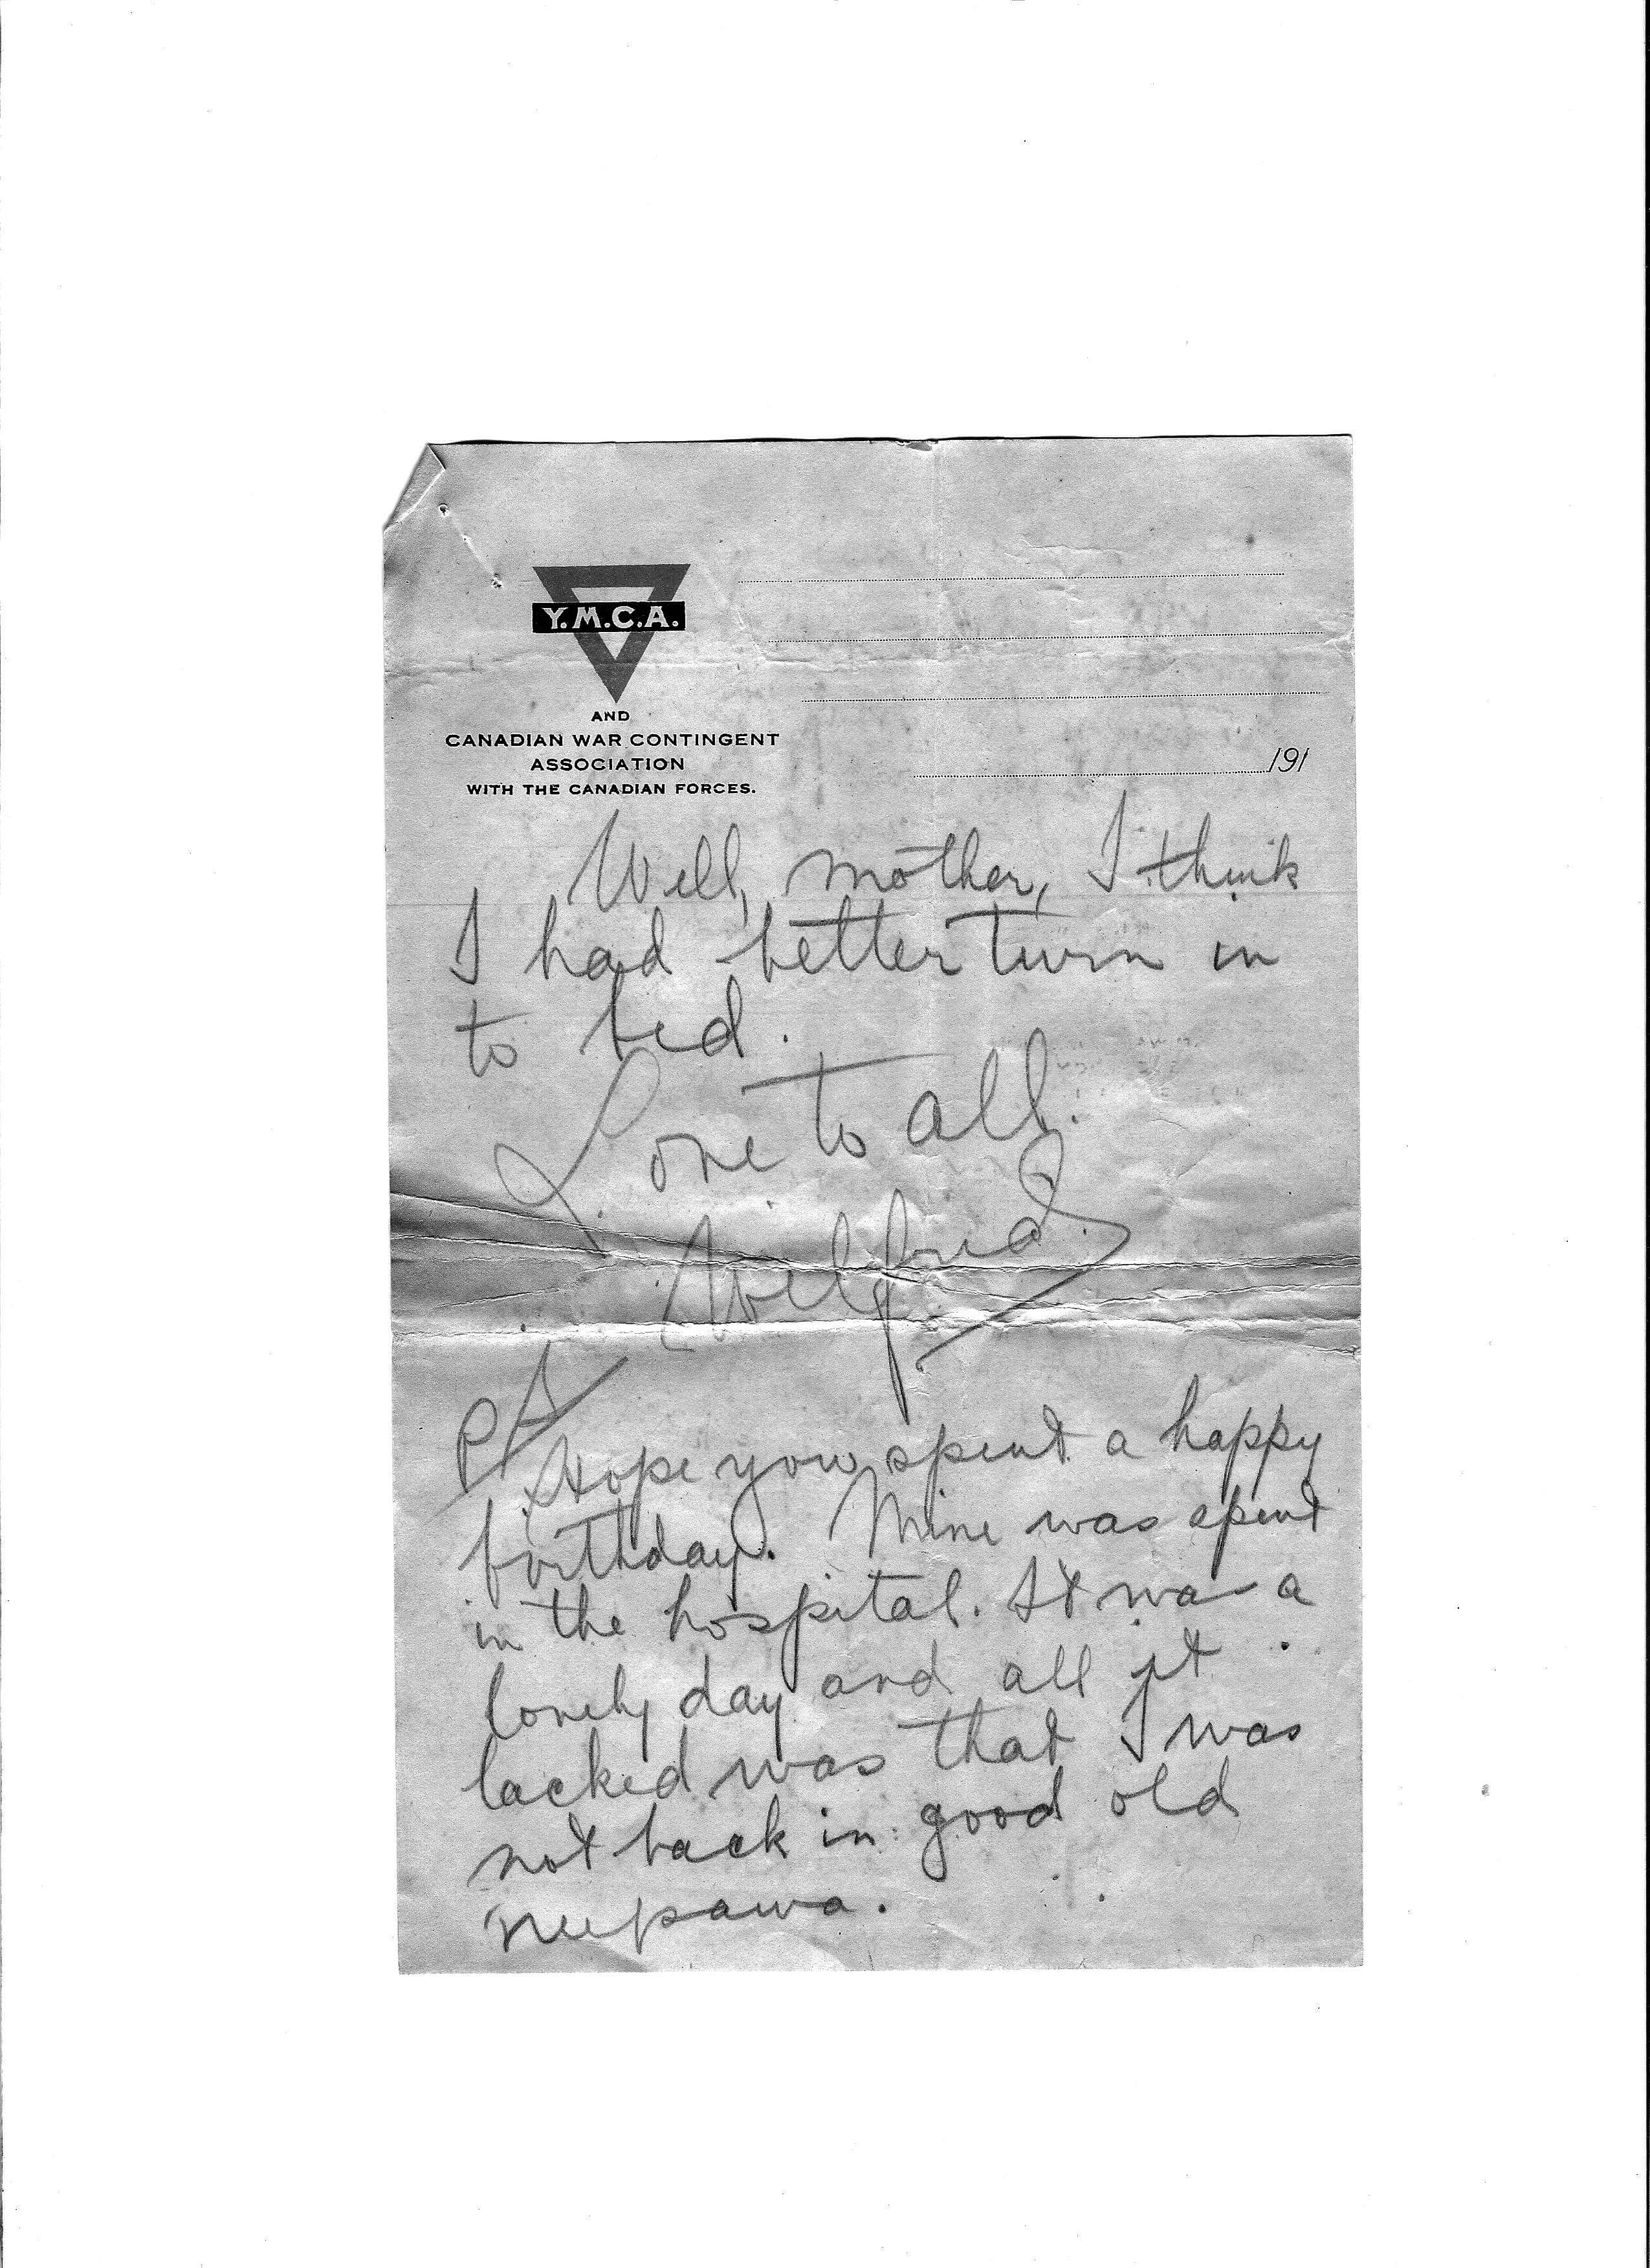 Y.M.C.A.
AND
CANADIAN WAR CONTINGENT
ASSOCIATION
WITH THE CANADIAN FORCES.
191
Well, mother, I think
I had better turn in
to bed.
Love to all.
Wilfred
PS
Hope you spent a happy
birthday. Mine was spent
in the hospital. It was a
lonely day and all it
lacked was that I was
not back in good old
Neepawa.